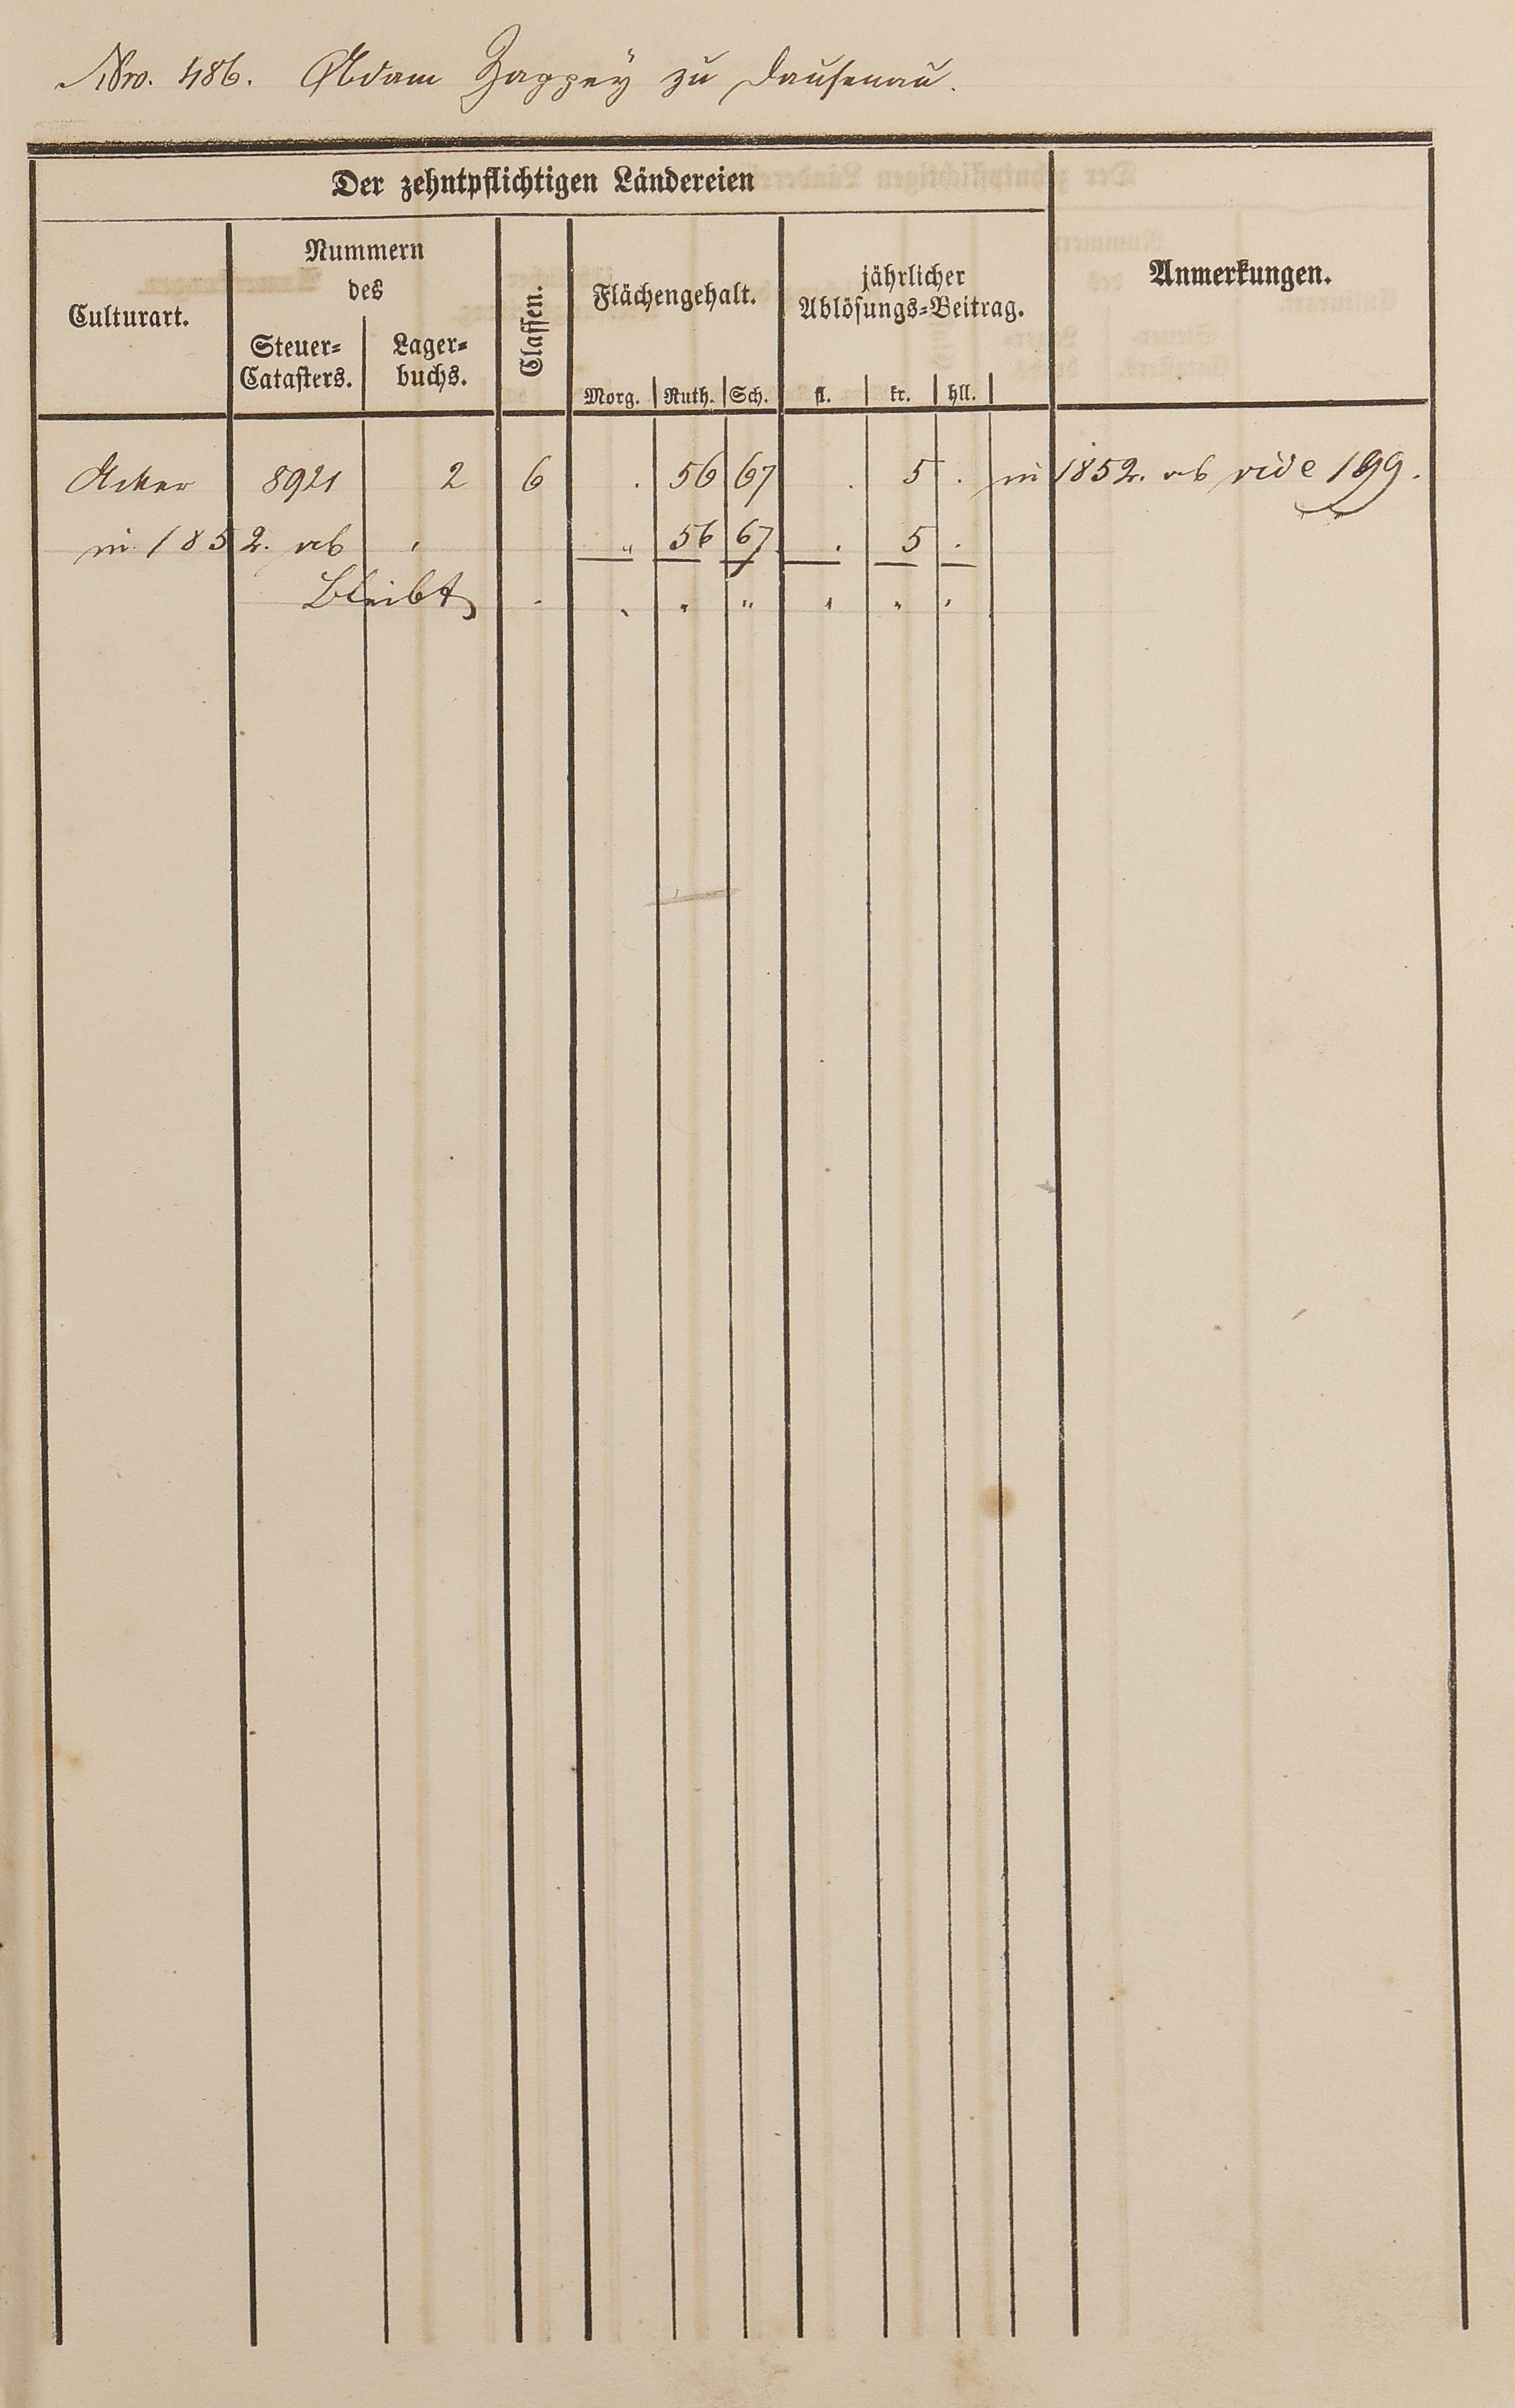 Nro. 486. Adam Zappey zu Dausenau.
Der zehntpflichtigen Ländereien
Anmerkungen.
Culturart.
Nummern
des
Steuer=
Catasters.
Lager=
buchs.
Classen.
Flächengehalt.
Morg. Ruth. Sch.
jährlicher
Ablösungs=Beitrag.
fl. kr. hll.
Acker 8921 2 6 . 56 67 . 5 . in 1852. ab vide 199.
in 1852. ab " " 56 67 . 5 .
Bleibt - " " " " " "